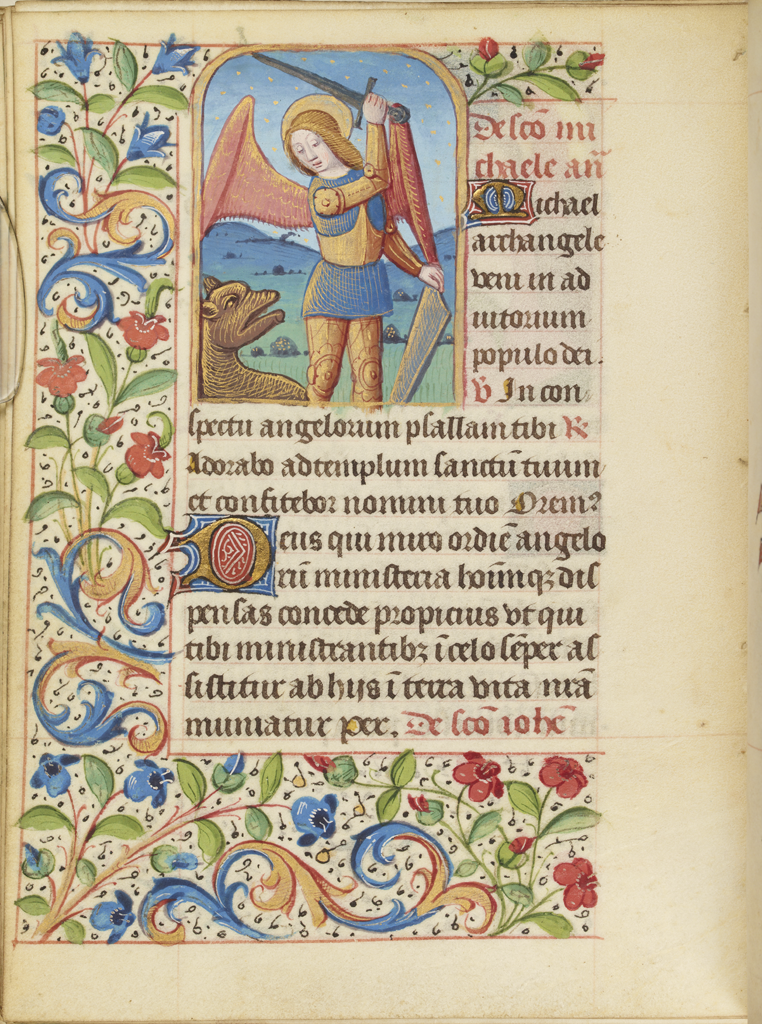 De scõ mi
chaele añ
Michael
archangele
veni in ad
iutorium
populo dei.
V In con
spectu angelorum psallam tibi R
Adorabo ad templum sanctũ tuum
et confitebor nomini tuo Orem?
Deus qui miro ordiẽ angelo
rũ ministeria hoĩmqꝫ dis
pensas concede propicius vt qui
tibi ministrantibꝫ ĩ celo sẽper as
sistitur ab hijs ĩ terra vita nrã
muniatur per. De scõ iohẽ